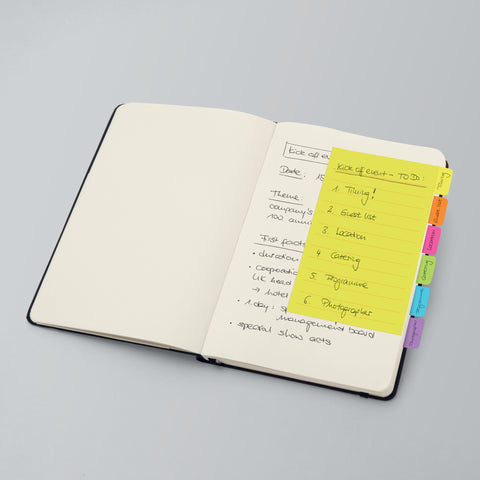 kick off ev
Date: 15
Theme:
company's
100 anni
First facts
• duration
• cooperatio
UK head
→ hotel
• 1. day: s
management board
• special show acts
Kick off event - TO DO:
1. Timing!
2. Guest list
3. Location
4 Catering
5. Programme
6. Photographer
Timing
Guest list
Location
Catering